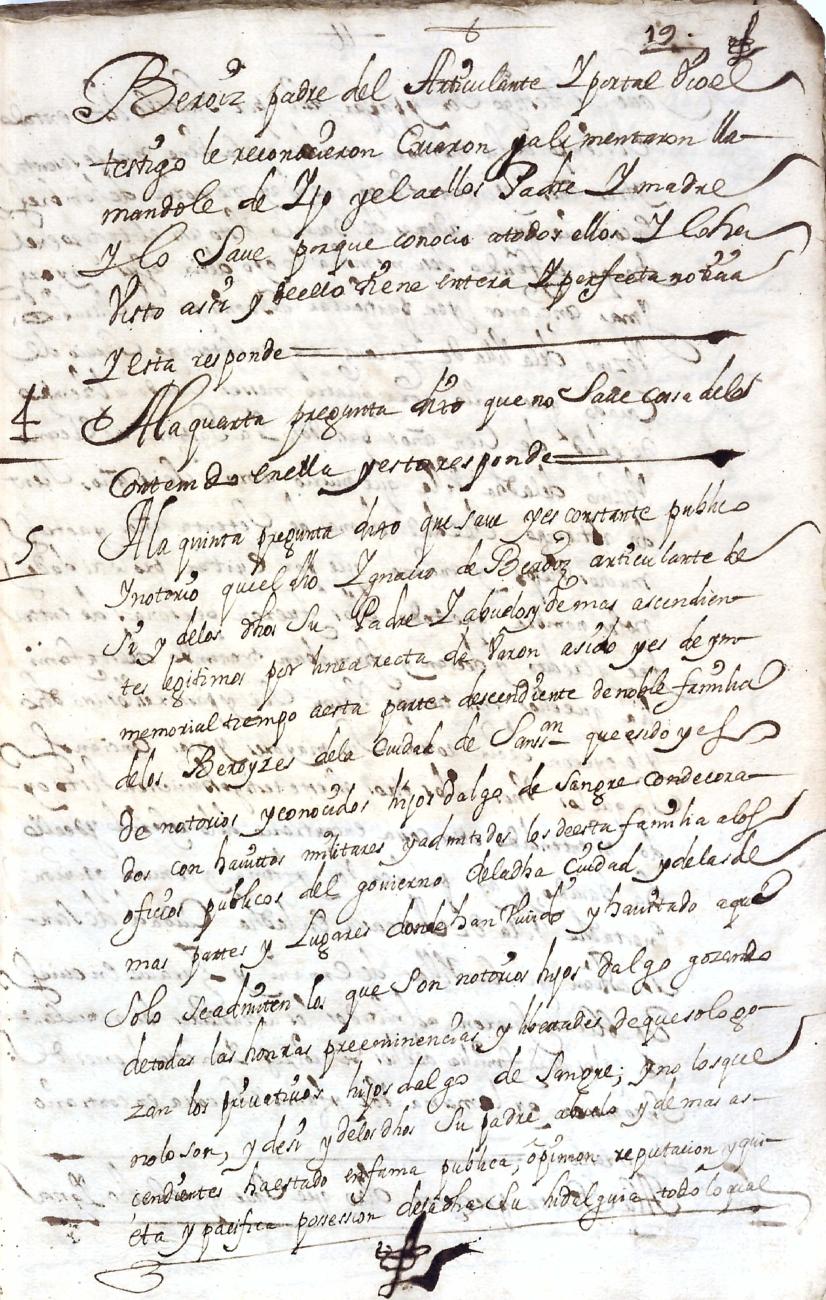 19.
Beroiz padre del Articulante Y por tal vio el
testigo le reconocieron Criaron y alimentaron lla-
mandole de Yjo y el a ellos Padre Y madre
Y lo Save porque conocio a todos ellos Y lo ha
Visto assi y de ello tiene entera Y perfecta noticia
Y esta responde
4 A la quarta pregunta dixo que no Save cosa de lo
Contenido en ella y esto responde
5 A la quinta pregunta dixo que save y es constante publico
Y notorio que el dho Ygnacio de Beroiz articulante de
Si y de los dhos Su Padre Y abuelo y demas ascendien-
tes legitimos por linea recta de Varon a sido y es de ym-
memorial tiempo a esta parte descendiente de noble familia
de los Beroyzes de la Ciudad de Sanss.an que e sido y es
de notorios y conocidos hijos dalgo de sangre condecora-
dos con havitos militares y admitidos los de esta familia a los
oficios publicos del govierno de la dha Ciudad y de las de
mas partes y Lugares donde han Vivido y havitado a que
Solo se admiten los que Son notorios hijos dalgo gozando
de todas las honrras preeminencias y libertades de que solo go-
zan los privativos hijos dalgo de Sangre; y no los que
no lo son, y de si y de los dhos Su padre abuelo y de mas as-
cendientes ha estado en fama publica, opinion reputacion y qui-
eta y pacifica possession de la dha Su hidalguia todo lo qual